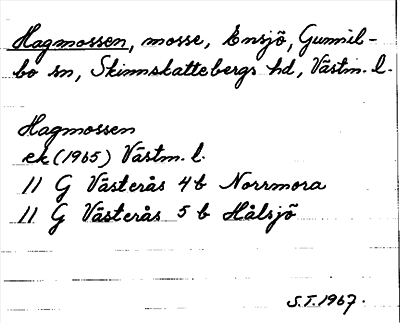 Hagmossen, mosse, Ensjö, Gunnil-
bo sn, Skinnskattebergs hd, Västm. l.
Hagmossen
ek (1965) Västm. l.
11 G Västerås 4b Norrmora
11 G Västerås 5b Hålsjö
S.T. 1967.